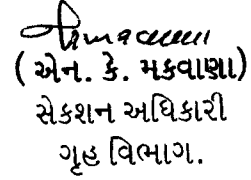 ( એન. કે. મકવાણા)
સેકશન અધિકારી
ગૃહ વિભાગ.